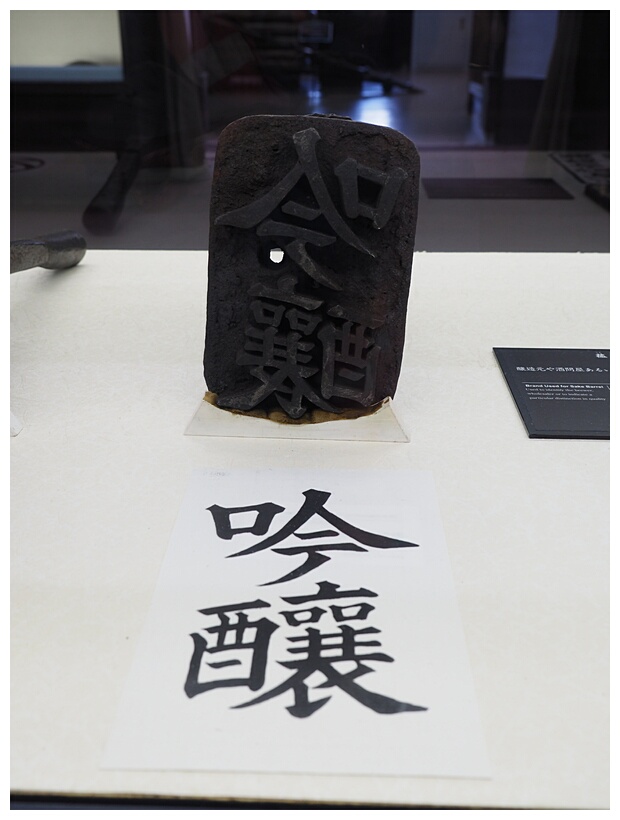 吟
釀
吟
釀
醸造元や酒問屋ある
Brand Used for Sake Barrel
Used to identify the brewer,
wholesaler or to indicate a
particular distinction in quality